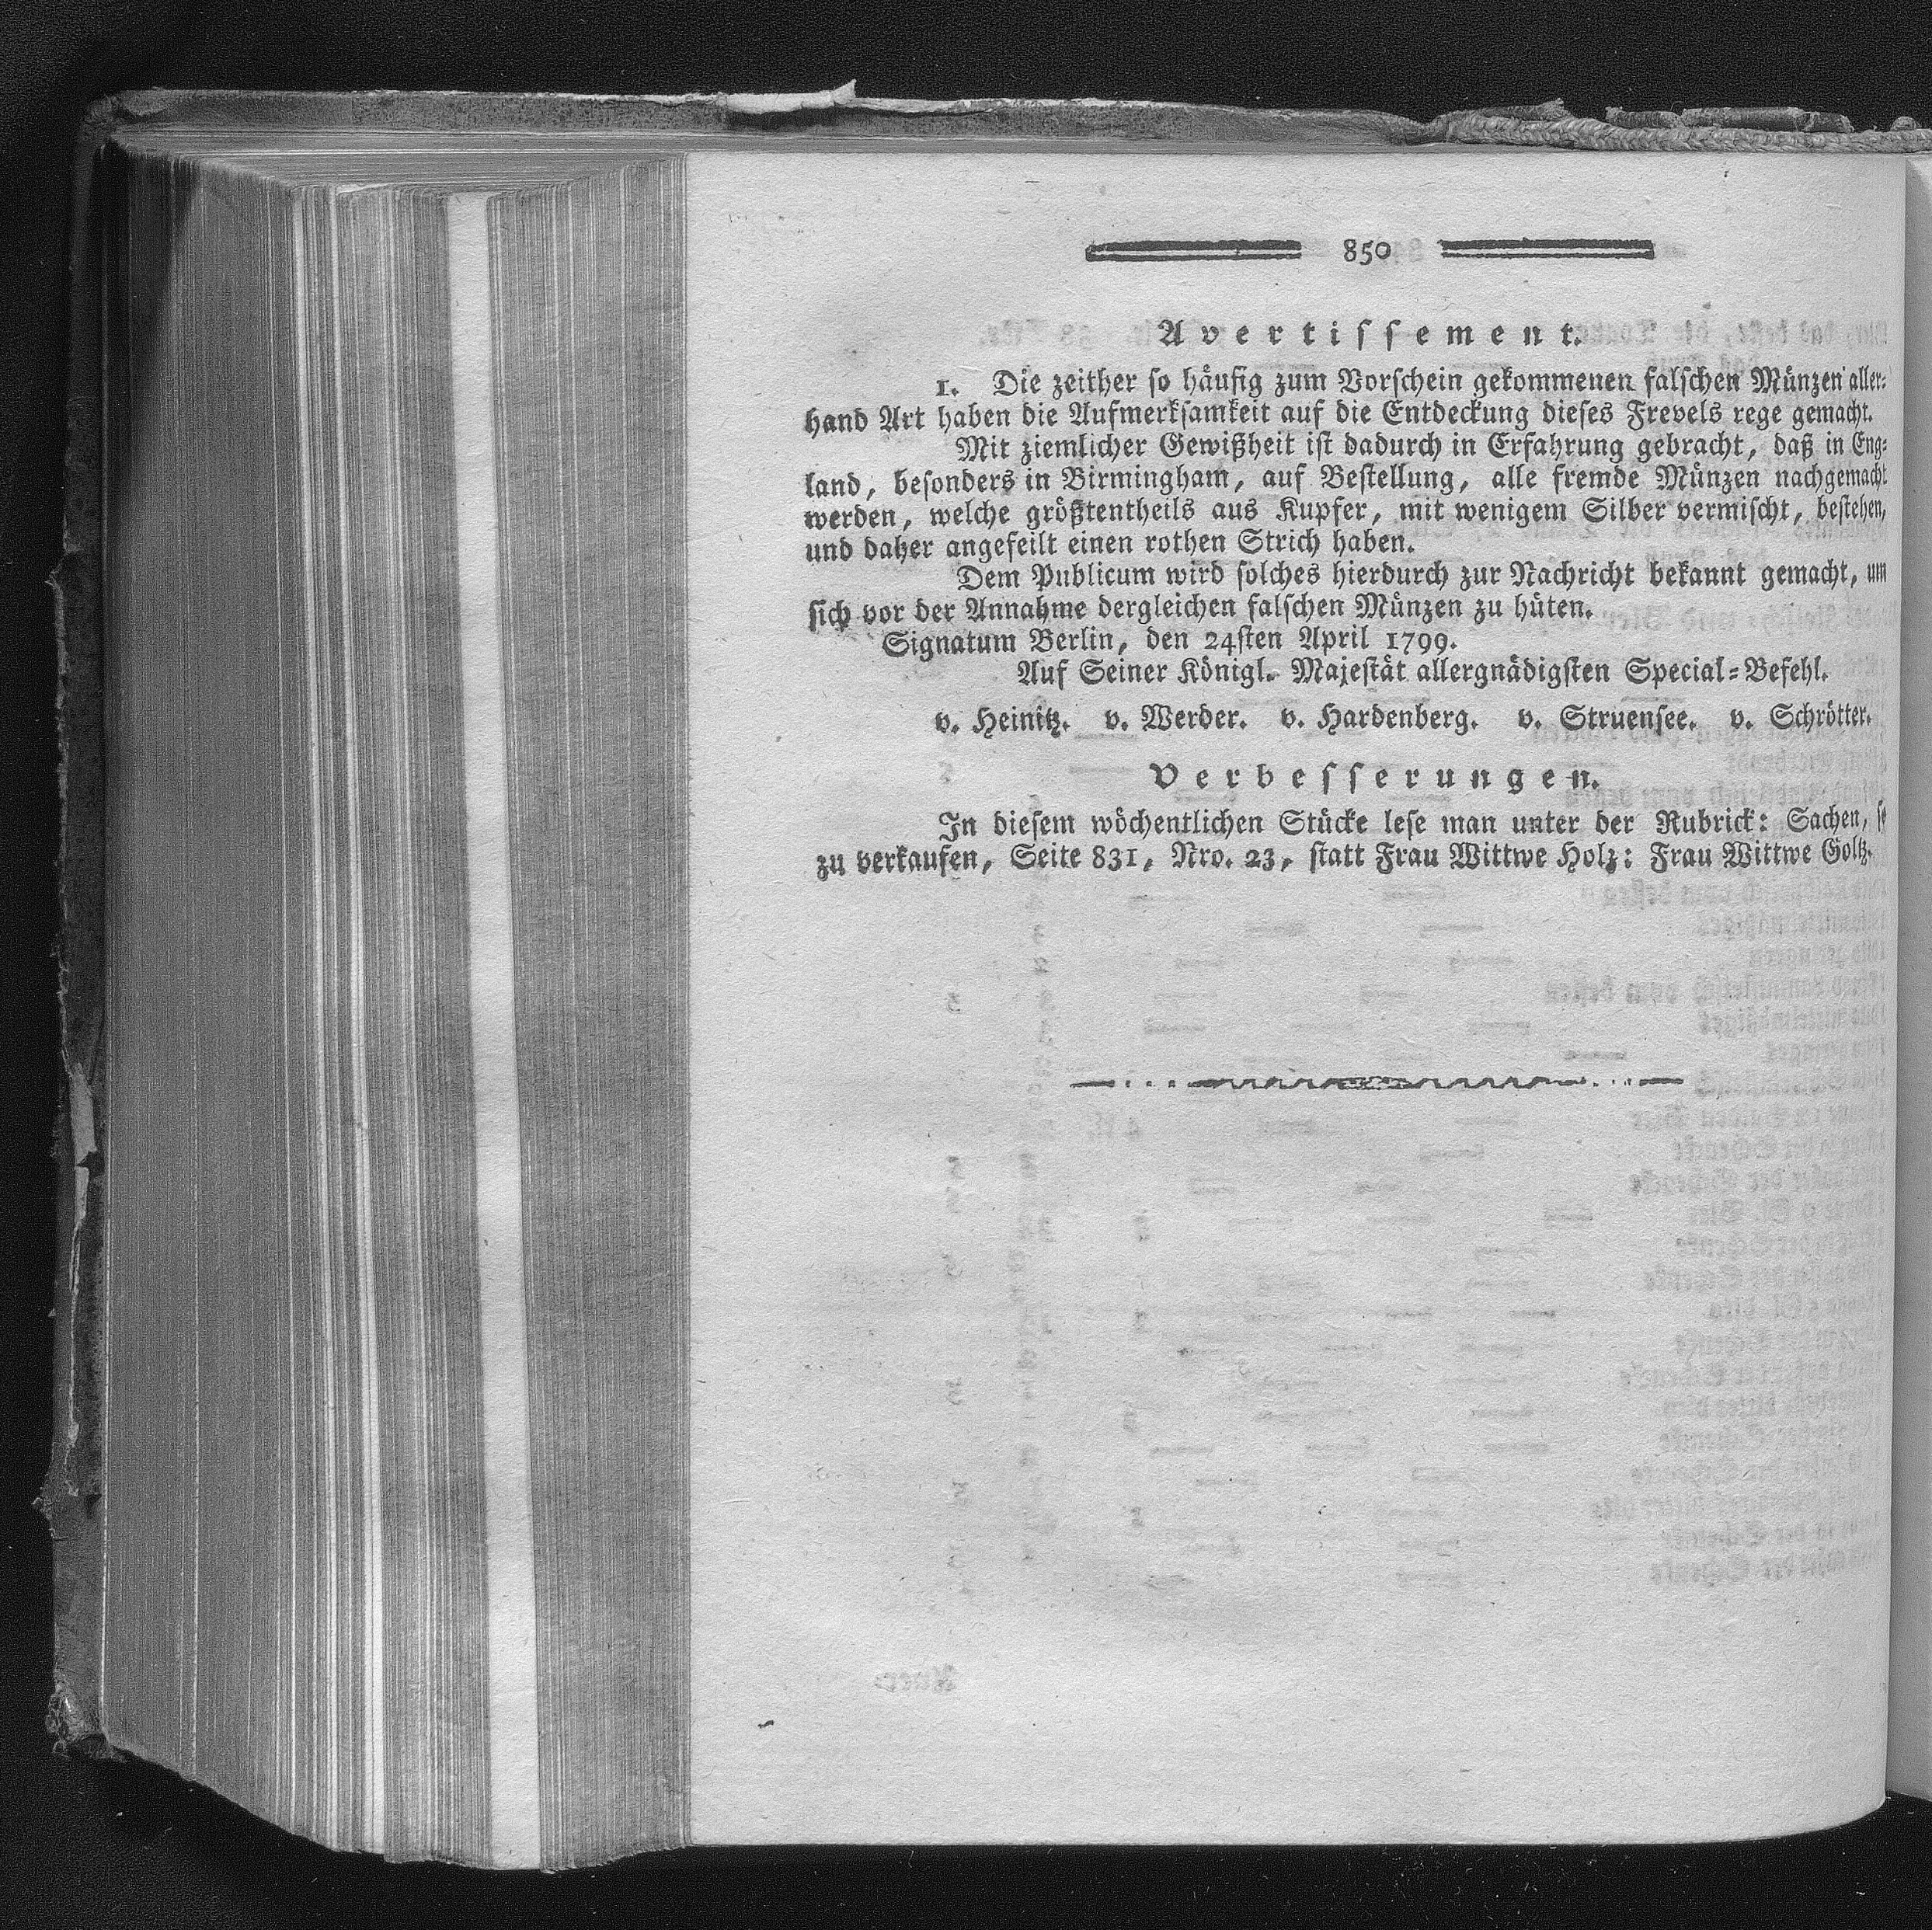 850
Avertissement.
1. Die zeither so häufig zum Vorschein gekommenen falschen Münzen aller-
hand Art haben die Aufmerksamkeit auf die Entdeckung dieses Frevels rege gemacht.
Mit ziemlicher Gewißheit ist dadurch in Erfahrung gebracht, daß in Eng-
land, besonders in Birmingham, auf Bestellung, alle fremde Münzen nachgemacht
werden, welche größtentheils aus Kupfer, mit wenigem Silber vermischt, bestehen,
und daher angefeilt einen rothen Strich haben.
Dem Publicum wird solches hierdurch zur Nachricht bekannt gemacht, um
sich vor der Annahme dergleichen falschen Münzen zu hüten.
Signatum Berlin, den 24sten April 1799.
Auf Seiner Königl. Majestät allergnädigsten Special-Befehl.
v. Heinitz. v. Werder. v. Hardenberg. v. Struensee. v. Schrötter.
Verbesserungen.
In diesem wöchentlichen Stücke lese man unter der Rubrick: Sachen, so
zu verkaufen, Seite 831, Nro. 23, statt Frau Wittwe Holz: Frau Wittwe Goltz.